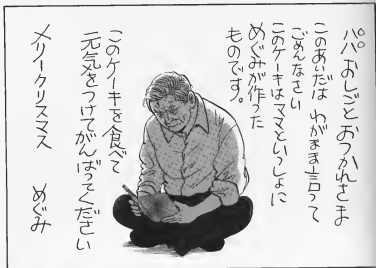 パパ おしごと おつかれさま
このあいだは わがまま言って
ごめんなさい
このケーキはママといっしょに
めぐみが作った
ものです。
このケーキを食べて
元気をつけてがんばってください
メリークリスマス めぐみ